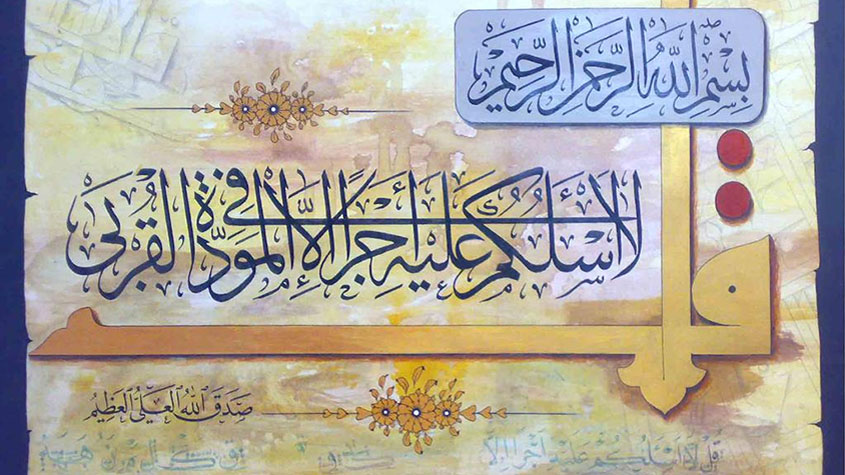 بِسْمِ اللهِ الرَّحْمٰنِ الرَّحِيمِ
قل
لا أَسْئَلُكُمْ عَلَيْهِ أَجْرًا إِلَّا الْمَوَدَّةَ فِي الْقُرْبىٰ
صَدَقَ اللهُ العَلِيُّ العَظِيمُ
قل لا اسئلكم عليه اجرا الا